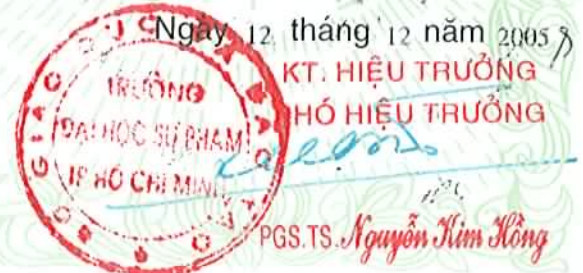 Ngày 12 tháng 12 năm 2005
KT. HIỆU TRƯỞNG
PHÓ HIỆU TRƯỞNG
TRƯỜNG
ĐẠI HỌC SƯ PHẠM
TP HỒ CHÍ MINH
PGS.TS. Nguyễn Kim Hồng